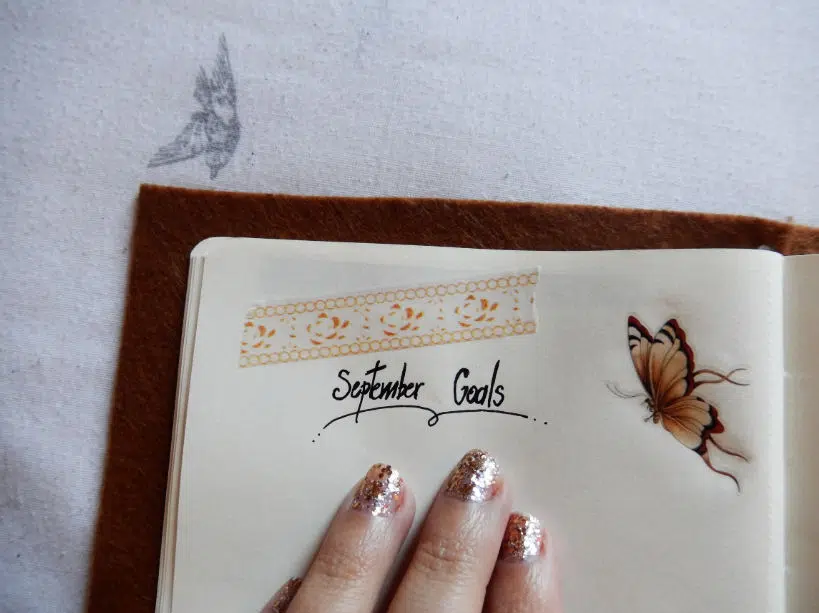 September Goals